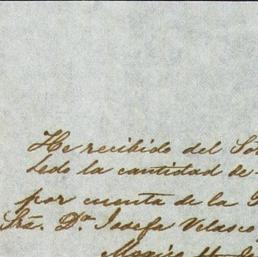 He recibido del
ledo la cantidad de
por cuenta de la
Sra. Dª Josefa Velasco